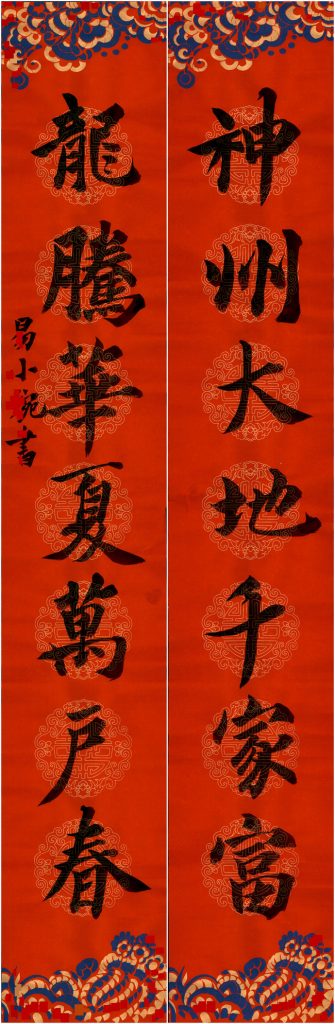 神州大地千家富
龍騰華夏萬戶春
易小婉書